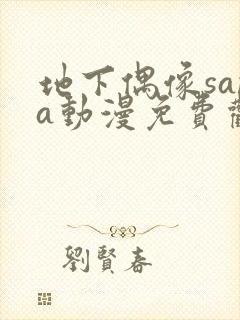 地下偶像sa
a動漫免費
劉賢春